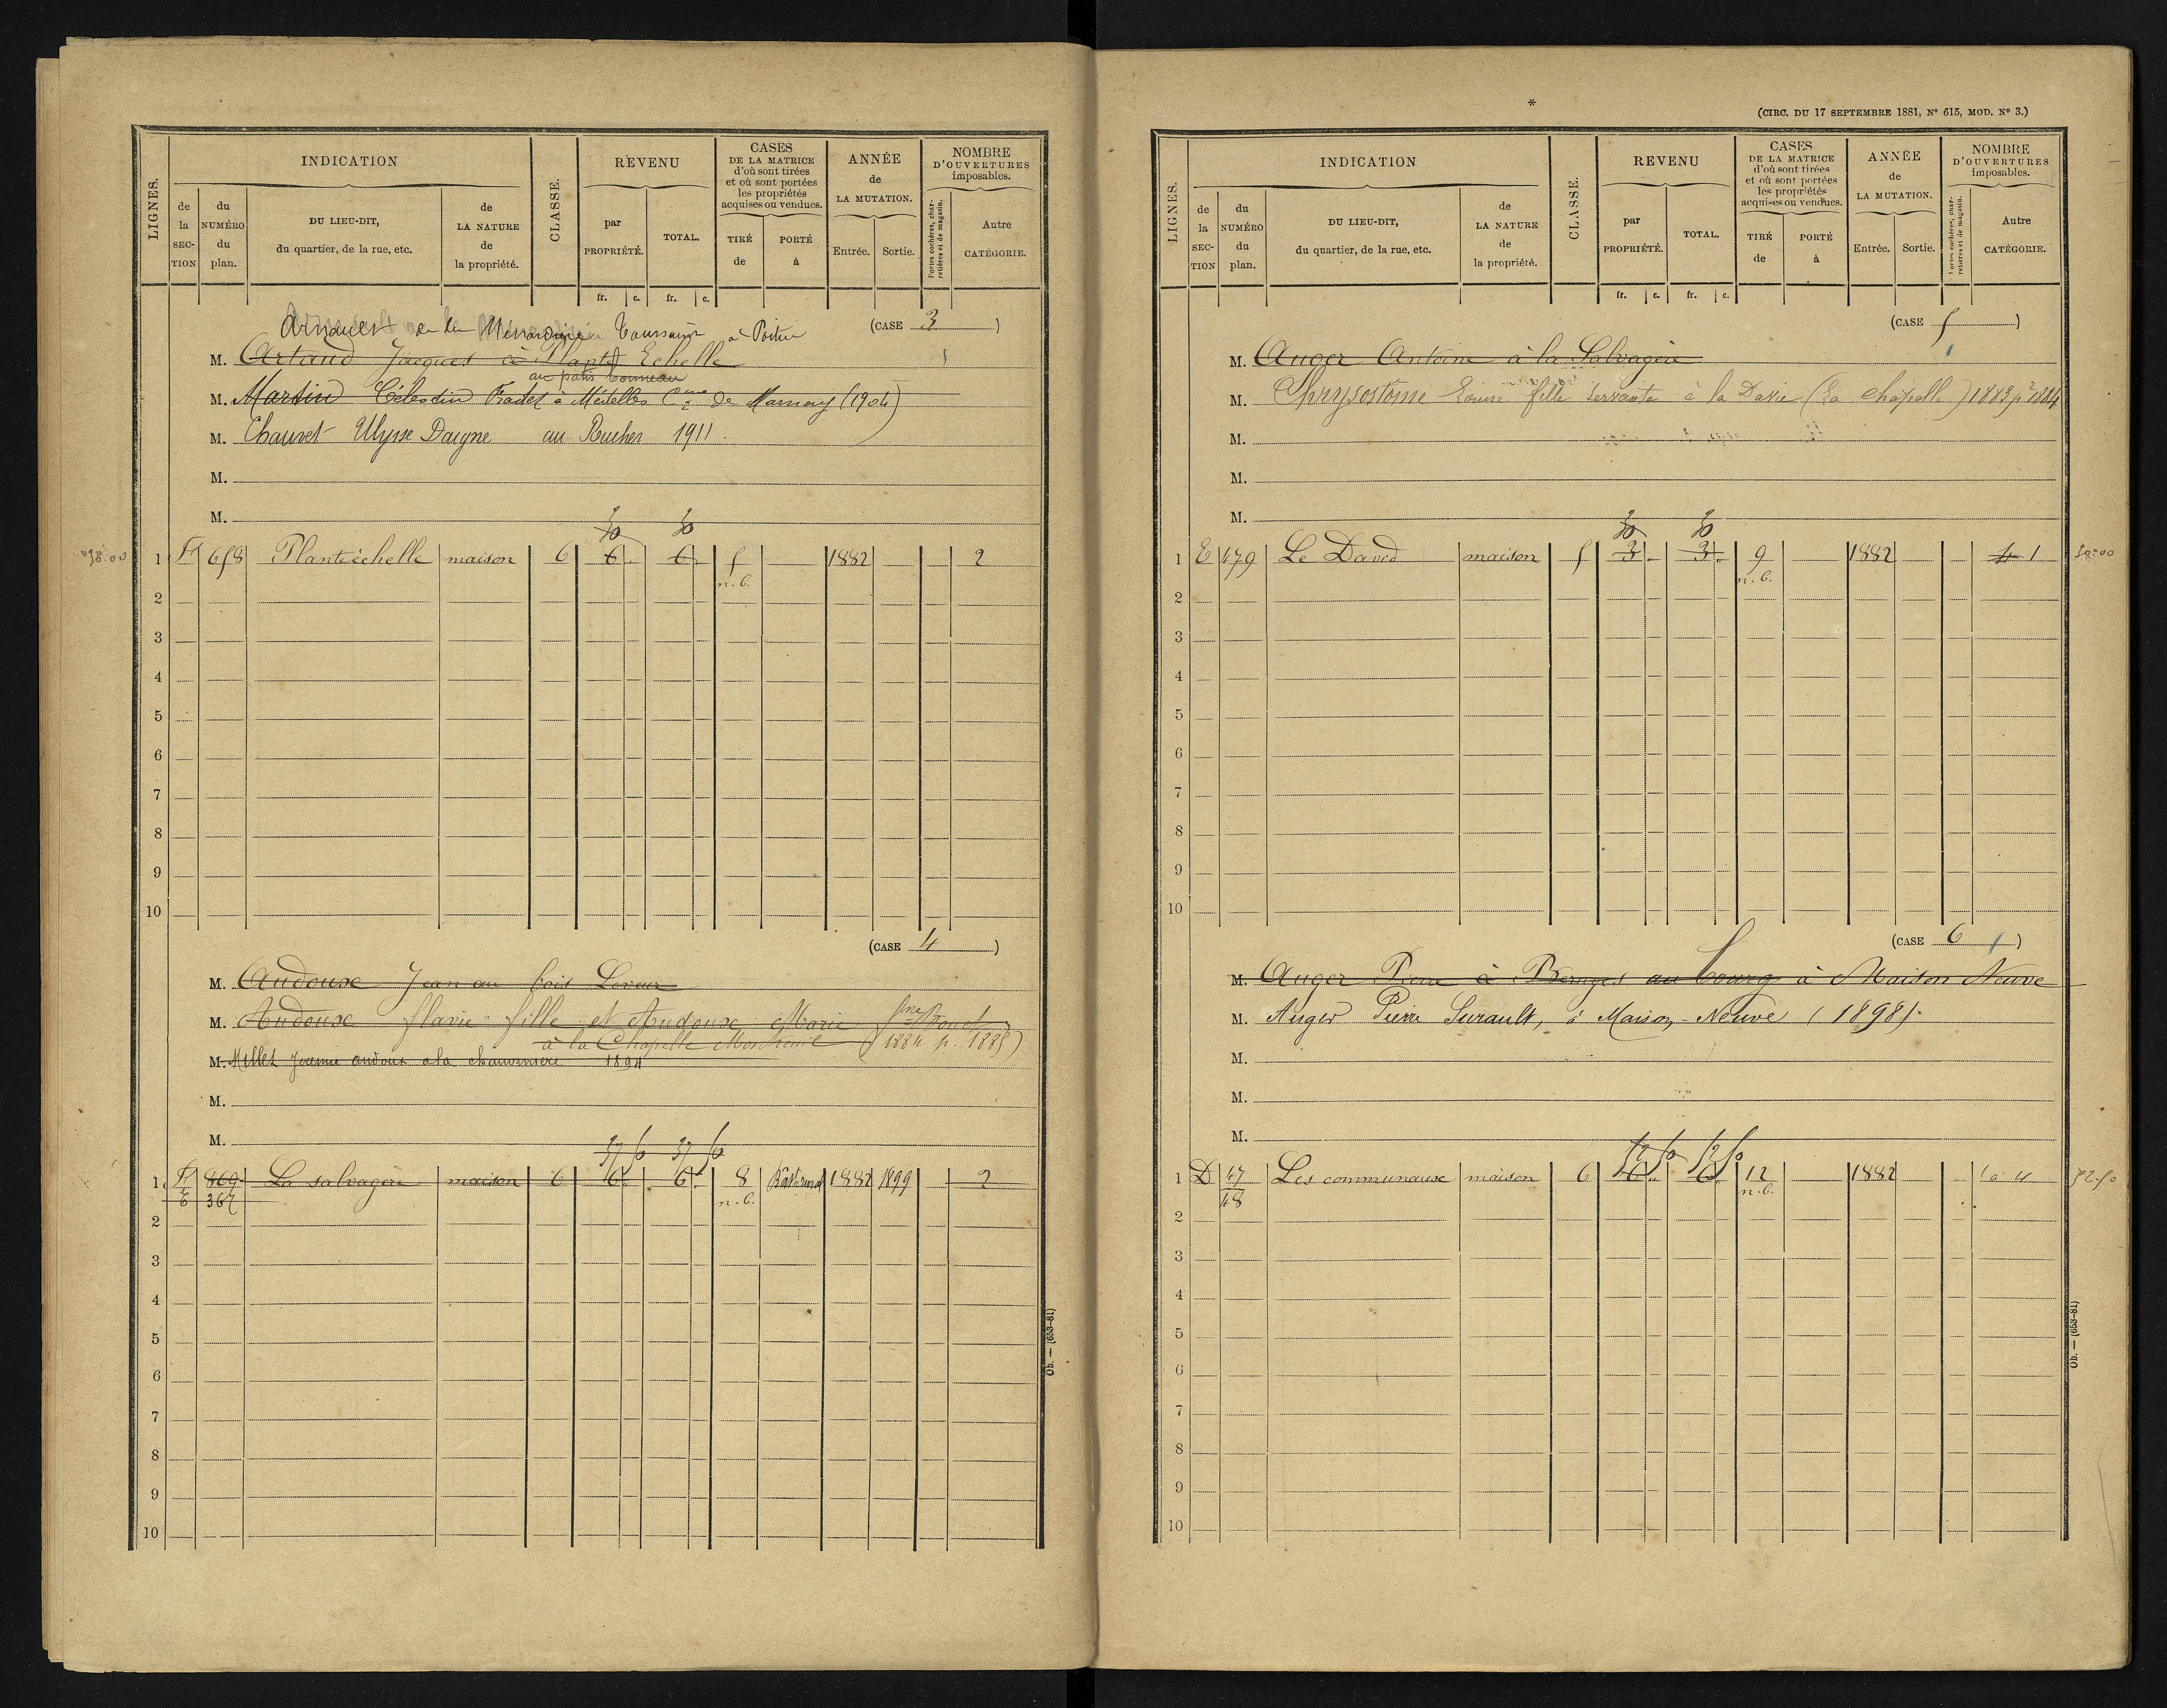 INDICATION
CLASSE.
REVENU
CASES
DE LA MATRICE
d'où sont tirées
et où sont portées
les propriétés
acquises ou vendues.
ANNÉE
de
LA MUTATION.
NOMBRE
D'OUVERTURES
imposables.
LIGNES.
de la SEC-TION
du NUMÉRO du plan.
DU LIEU-DIT,
du quartier, de la rue, etc.
de LA NATURE de la propriété.
par PROPRIÉTÉ.
TOTAL.
TIRÉ de
PORTÉ à
Entrée.
Sortie.
Portes cochères, char-
retières et de magasin.
Autre CATÉGORIE.
fr. c. fr. c.
(CASE 3)
à Poitiers
M. Artaud Jacques à Plante Echelle
M. Martin Célestin Fradet à Mézelles Cne de Marnay (1904)
M. Chauvet Ulysse Daigne au Rucher 1911.
M.
M.
1 658 Plantéchelle maison 6 6 6 5 1882 2
n. c.
2
3
4
5
6
7
8
9
10
(CASE 4)
M. Audoux Jean au bois
M. Audoux flavie fille et Audoux Marie
à la Chapelle 1884 p. 1885)
M. Millet andoux a la 1894
M.
M.
37 50 37 50
1 869 La salvagère maison 6 6 6 8 1882 1899 2
E 367 n. c.
2
3
4
5
6
7
8
9
10
Ob. — (653-81)
*
(CIRC. DU 17 SEPTEMBRE 1881, N° 615, MOD. N° 3.)
INDICATION
CLASSE.
REVENU
CASES
DE LA MATRICE
d'où sont tirées
et où sont portées
les propriétés
acquises ou vendues.
ANNÉE
de
LA MUTATION.
NOMBRE
D'OUVERTURES
imposables.
LIGNES.
de la SEC-TION
du NUMÉRO du plan.
DU LIEU-DIT,
du quartier, de la rue, etc.
de LA NATURE de la propriété.
par PROPRIÉTÉ.
TOTAL.
TIRÉ de
PORTÉ à
Entrée.
Sortie.
Portes cochères, char-
retières et de magasin.
Autre CATÉGORIE.
fr. c. fr. c.
(CASE 5)
M. Auger Antoine à la Salvagère
M. Chrysostôme Louise fille servante à la Davie (La chapelle) 1883 pr 1884
M.
M.
M.
1 E 479 Le David maison 5 3 3 9 1882 4 1
n. c.
2
3
4
5
6
7
8
9
10
(CASE 6)
M. Auger Pierre à Béruges au bourg à Maison Neuve
M. Auger Pierre Surault, à Maison-Neuve (1898).
M.
M.
M.
52 50 52 50
1 D 47 Les communaux maison 6 6 6 12 1882 4 52.50
48 n. c.
2
3
4
5
6
7
8
9
10
Ob. — (653-81)